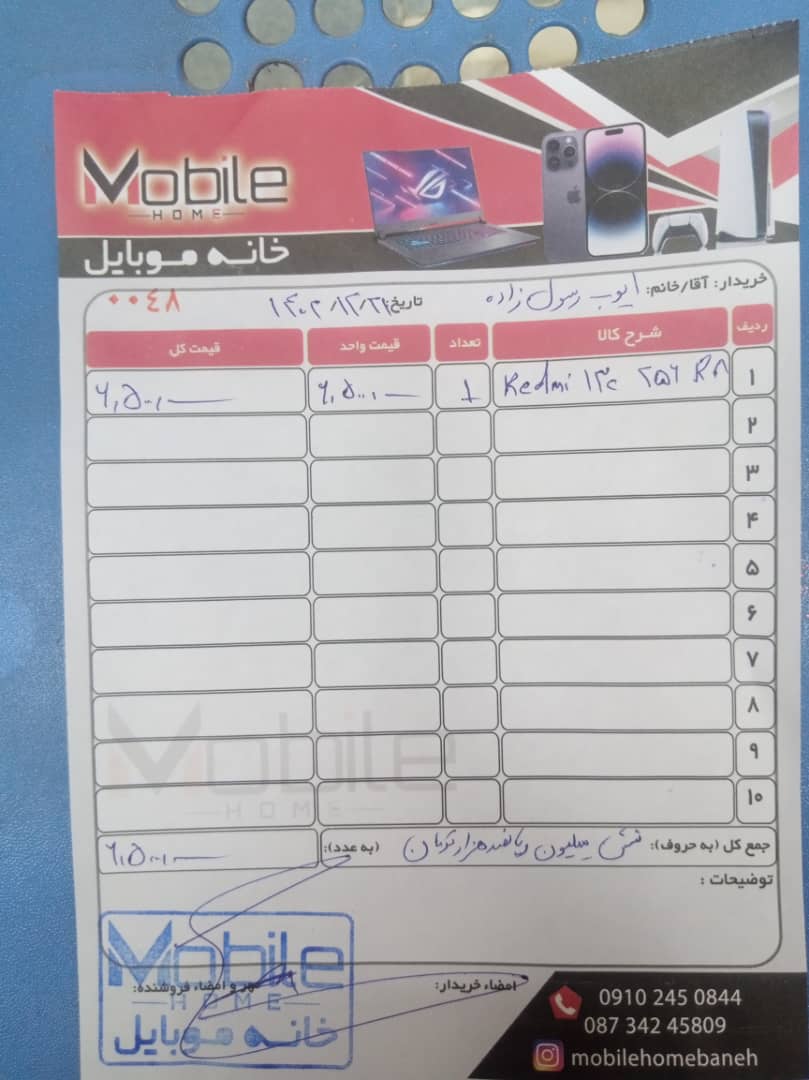 Mobile
HOME
خانه موبایل
خریدار: آقا/خانم: ایوب رسول زاده
تاریخ: ۱۴۰۲/۱۲/۲۱
۰۰۴۸
ردیف شرح کالا تعداد قیمت واحد قیمت کل
۱ Redmi ۱۳c ۲۵۶ R۸ ۱ ۶,۵۰۰,۰۰۰ ۶,۵۰۰,۰۰۰
۲
۳
۴
۵
۶
۷
۸
۹
۱۰
Mobile
HOME
جمع کل (به حروف): شش میلیون و پانصد هزار تومان (به عدد): ۶,۵۰۰,۰۰۰
توضیحات :
امضاء خریدار: مهر و امضاء فروشنده:
Mobile
HOME
خانه موبایل
0910 245 0844
087 342 45809
mobilehomebaneh